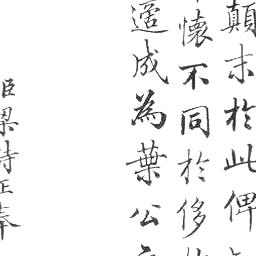 顛末於此俾
懷不同於侈
適成為葉公
臣梁詩正奉